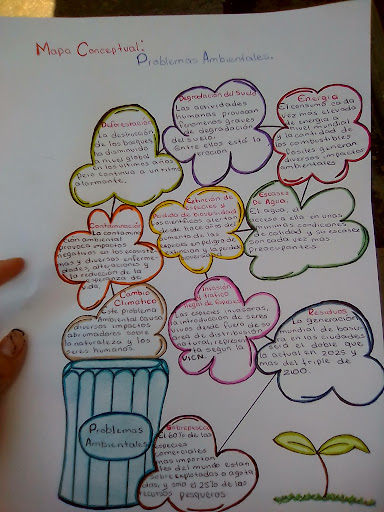 Mapa Conceptual:
Problemas Ambientales.
Deforestación
La destrucción
de los bosques
ha disminuido
a nivel global
en los ultimos años
pero continua a un ritmo
alarmante.
Degradación del Suelo
Las actividades
humanas provocan
fenomenos graves
de degradación
del suelo.
Entre ellos está la
Energía
El consumo cada
vez más elevado
de energía a
nivel mundial
y la cantidad de
los combustibles
fósiles generan
diversos impactos
ambientales
Contaminación
La contamina
ción ambiental
provoca impactos
negativos en los ecosiste
mas y diversas enferme
dades, alteraciones y
la reducción de la
esperanza de
vida.
Extinción de
especies y
Perdida de Biodiversidad
Los científicos alertan
desde hace años del
aumento de las
especies en peligro de
extinción y la perdida
Escasez
De Agua.
El agua, el
acceso a ella en unas
mínimas condiciones
de calidad y su escasez
son cada vez más
preocupantes.
Cambio
Climatico
Este problema
Ambiental causa
diversos impactos
abrumadores sobre
la naturaleza y los
seres humanos.
Invasión
y tráfico
ilegal de Especies
Las especies invasoras,
la introducción de seres
vivos desde fuera de su
área de distribución
natural, representan
la segun la
UICN.
Residuos
La generación
mundial de basura
en las ciudades
será el doble que
la actual en 2025 y
mas del triple de
2100.
Problemas
Ambientales
Sobrepesca
El 60% de las
especies
comerciales
mas importan
tes del mundo estan
sobre explotadas o agota
das, y sino el 25% de los
recursos pesqueros